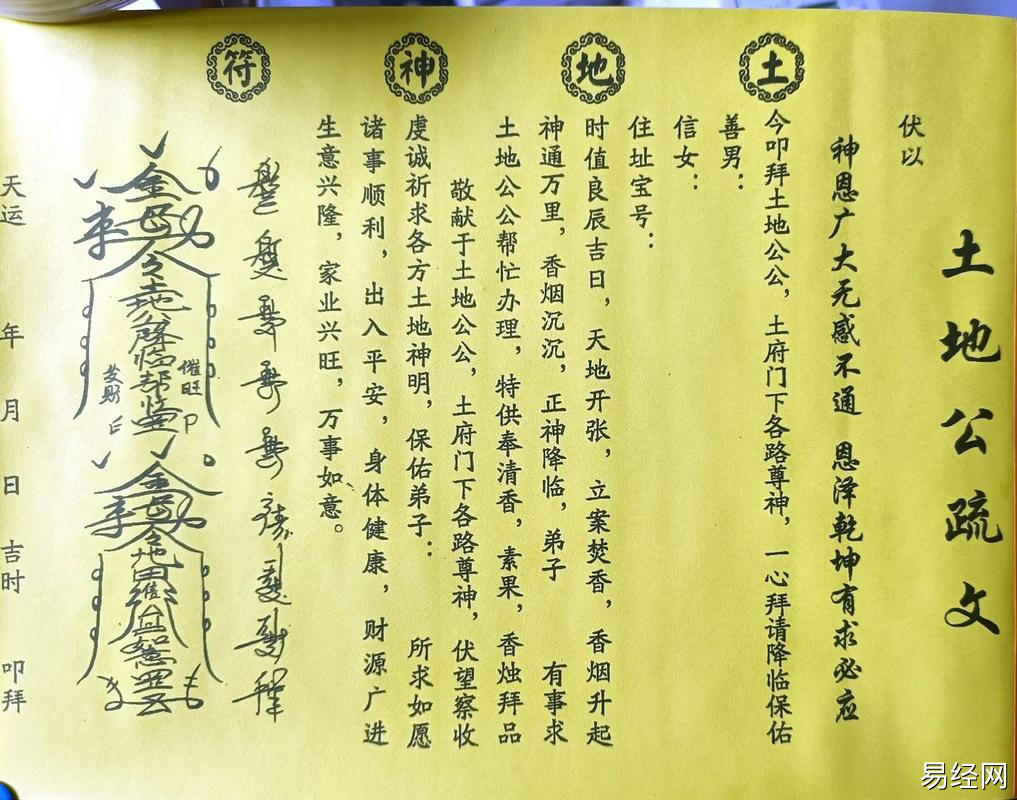 土地神符
土地公疏文
伏以
神恩广大无感不通 恩泽乾坤有求必应
今叩拜土地公公，土府门下各路尊神，一心拜请降临保佑
善男：
信女：
住址宝号：
时值良辰吉日，天地开张，立案焚香，香烟升起
神通万里，香烟沉沉，正神降临，弟子 有事求
土地公公帮忙办理，特供奉清香，素果，香烛拜品
敬献于土地公公，土府门下各路尊神，伏望察收
虔诚祈求各方土地神明，保佑弟子： 所求如愿
诸事顺利，出入平安，身体健康，财源广进
生意兴隆，家业兴旺，万事如意。
催旺
发财
天运 年 月 日 吉时 叩拜
易经网